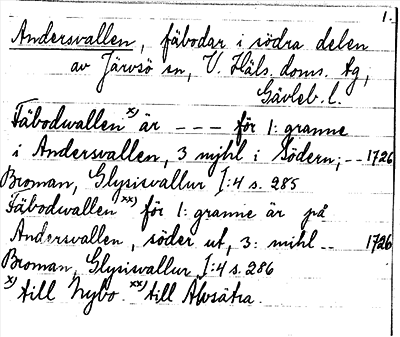 1.
Andersvallen, fäbodar i södra delen
av Järvsö sn, V. Häls. doms. tg,
Gävleb. l.
Fäbodvallen x) är --- för 1: granne
i Andersvallen, 3 mjhl i Södern; -- 1726
Broman, Glysisvallur I:4 s. 285
Fäbodvallen xx) för 1: granne är på
Andersvallen, söder ut, 3: mihl -- 1726
Broman, Glysisvallur I:4 s. 286
x) till Nybo. xx) till Älvsätra.